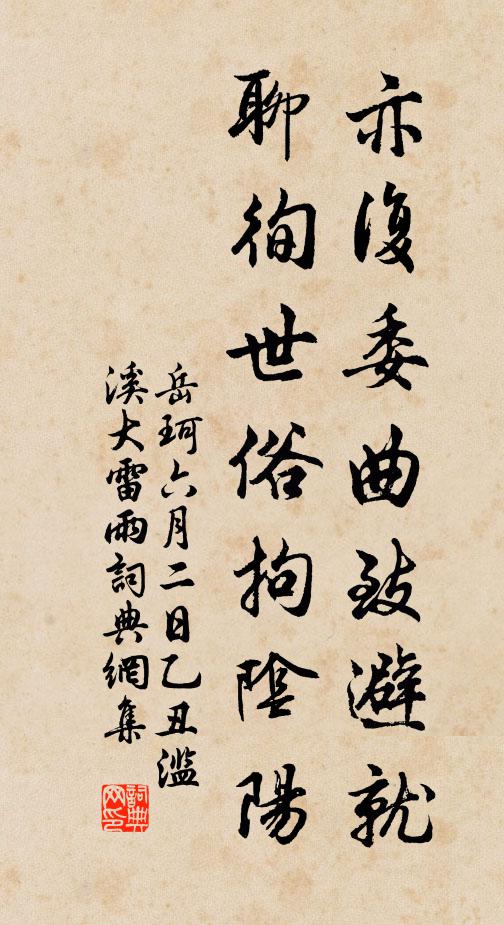 亦復委曲致避就
聊徇世俗拘陰陽
岳珂六月二日乙丑濫
溪大雷雨詞典網集
詞典
网印